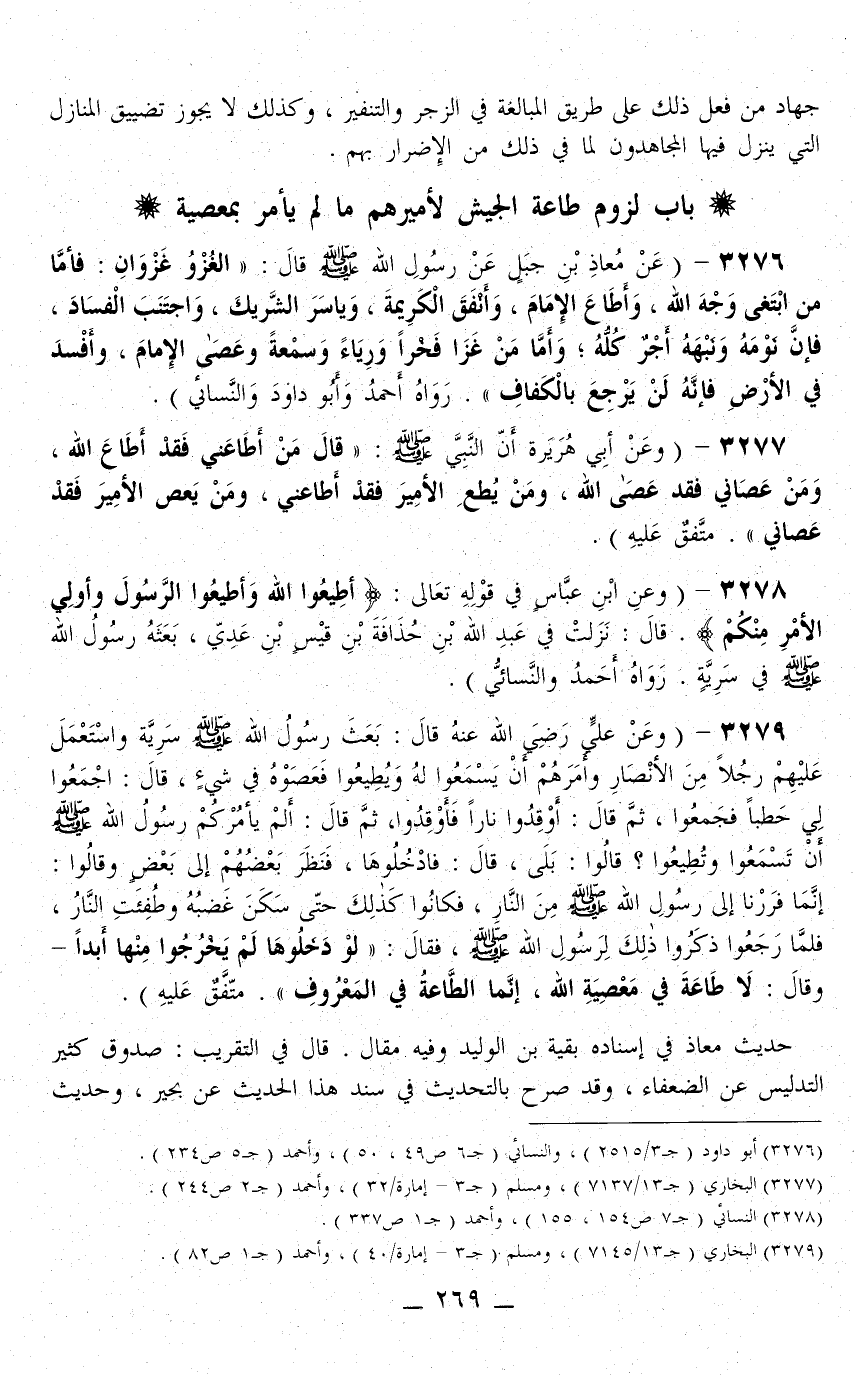 جهاد من فعل ذلك على طريق المبالغة في الزجر والتنفير ، وكذلك لا يجوز تضييق المنازل
التي ينزل فيها المجاهدون لما في ذلك من الإضرار بهم .
❋ باب لزوم طاعة الجيش لأميرهم ما لم يأمر بمعصية ❋
٣٢٧٦ – ( عَنْ مُعاذِ بْنِ جبَلٍ عَنْ رسُولِ الله ﷺ قالَ : « الغُزْوُ غَزْوَانِ : فأمَّا
من ابْتَغى وَجْهَ الله ، وَأَطَاعَ الإِمَامَ ، وَأَنْفَقَ الْكَرِيمةَ ، وَياسَرَ الشَّريكَ ، وَاجتَنَبَ الْفسَادَ ،
فإنَّ نَوْمَهُ وَنَبْهَهُ أَجْرٌ كلُّهُ ؛ وَأَمَّا مَنْ غَزَا فَخْراً وَرِيَاءً وَسمْعةً وعصَىٰ الإمامَ ، وأَفْسدَ
في الأرْضِ فإنَّهُ لَنْ يَرْجِعَ بالْكَفافِ » . رَوَاهُ أَحمدُ وَأَبُو داوُدَ وَالنَّسائي ) .
٣٢٧٧ – ( وعَنْ أبي هُرَيَرة أَنّ النَّبِيَّ ﷺ : « قالَ مَنْ أَطَاعَني فَقدْ أَطَاعَ الله ،
وَمَنْ عَصَاني فقد عَصَىٰ الله ، ومَنْ يُطع ِ الأميرَ فقدْ أَطاعني ، ومَنْ يَعص الأمِيرَ فَقدْ
عَصاني » . متَّفقٌ عَليهِ ) .
٣٢٧٨ – ( وعنِ ابْنِ عبَّاسٍ في قوْلِهِ تعَالى : ﴿ أطِيعُوا الله وَأطيعُوا الرَّسُولَ وأولِي
الأمْرِ مِنْكُمْ ﴾ . قالَ : نَزَلتْ في عَبدِ الله بْنِ حُذَافَةَ بْنِ قيْسٍ بْنِ عَدِيّ ، بَعَثَهُ رسُولُ الله
ﷺ في سَرِيَّةٍ . رَوَاهُ أَحَمدُ والنَّسائيُّ ) .
٣٢٧٩ – ( وعَنْ عليٍّ رَضِيَ الله عنهُ قالَ : بَعَثَ رسُولُ الله ﷺ سَرِيَّة واسْتَعْمَلَ
عَليْهِمْ رجُلاً مِنَ الأنْصَارِ وأمَرَهُمْ أَنْ يَسْمَعُوا لهُ وَيُطِيعُوا فَعَصَوْهُ في شيءٍ ، قالَ : اجْمَعُوا
لِي حَطباً فجَمعُوا ، ثمَّ قالَ : أَوْقِدُوا ناراً فَأَوْقِدُوا، ثمَّ قالَ : أَلمْ يأمُرْكُمْ رسُولُ الله ﷺ
أَنْ تَسْمَعُوا وتُطِيعُوا ؟ قالُوا : بَلَى ، قالَ : فادْخُلُوهَا ، فَنَظَرَ بَعْضُهُمْ إلى بَعْضٍ وقالُوا :
إنَّمَا فرَرْنا إلى رسُولِ الله ﷺ مِنَ النَّارِ ، فكانُوا كَذٰلِكَ حتّى سَكَنَ غَضبُهُ وطُفِئَتِ النَّارُ ،
فلمَّا رَجَعُوا ذكَرُوا ذٰلِكَ لِرَسُولِ الله ﷺ ، فقالَ : « لوْ دَخلُوهَا لَمْ يَخْرُجُوا مِنْها أَبداً –
وقالَ : لَا طَاعَةَ في مَعْصِيَةِ الله ، إنَّما الطَّاعةُ في المَعْرُوفِ » . متّفَّقٌ عَليهِ ) .
حديث معاذ في إسناده بقية بن الوليد وفيه مقال . قال في التقريب : صدوق كثير
التدليس عن الضعفاء ، وقد صرح بالتحديث في سند هذا الحديث عن بحير ، وحديث
(٣٢٧٦) أبو داود ( جـ٢٥١٥/٣ ) ، والنسائي ( جـ٦ ص٤٩ ، ٥٠ ) ، وأحمد ( جـ٥ ص٢٣٤ ) .
(٣٢٧٧) البخاري ( جـ٧١٣٧/١٣ ) ، ومسلم ( جـ٣ – إمارة/٣٢ ) ، وأحمد ( جـ٢ ص٢٤٤ ) .
(٣٢٧٨) النسائي ( جـ٧ ص١٥٤ ، ١٥٥ ) ، وأحمد ( جـ١ ص٣٣٧ ) .
(٣٢٧٩) البخاري ( جـ٧١٤٥/١٣ ) ، ومسلم ( جـ٣ – إمارة/٤٠ ) ، وأحمد ( جـ١ ص٨٢ ) .
– ٢٦٩ –